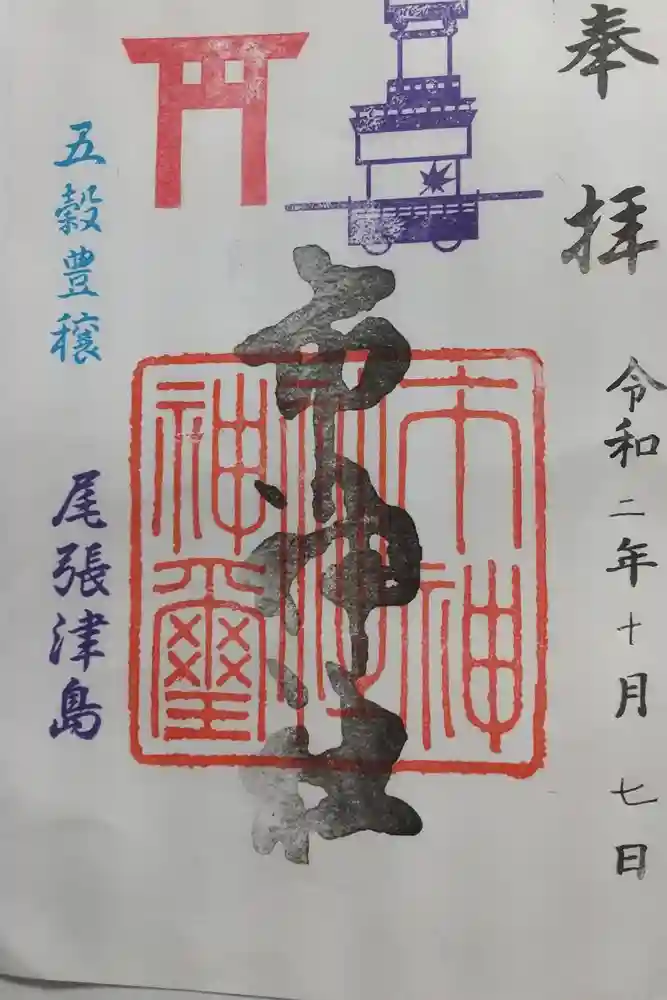 奉拝
令和二年十月七日
市神社
市神
社
神璽
五穀豊穣
尾張津島